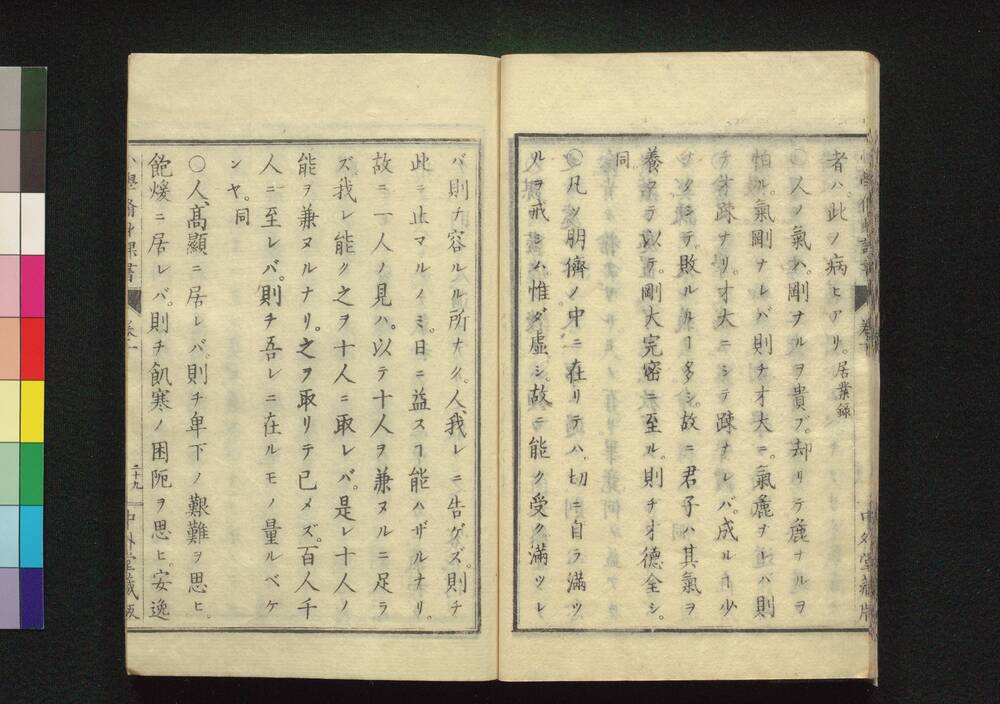 者ハ。此ノ病ヒアリ。居業録
〇人ノ氣ハ。剛ナルヲ貴ブ。却リテ麁ナルヲ
怕ル。氣剛ナレバ則チ才大ニ。氣麁ヲレバ則
チ才疎ナリ。才大ニシテ疎ナレバ。成ルヿ少
シクシテ。敗ルルヿ多シ。故ニ君子ハ其氣ヲ
養タラ以テ。剛大完密ニ至ル。則チ才德全シ。
同
〇凡ソ朋儕ノ中ニ在リテハ。切ニ自ラ滿ツ
ルヲ戒シム。惟ダ虛シ。故ニ能ク受ク。滿ツレ
バ則チ容ルル所ナク。人我レニ告ゲズ。則チ
此ニ止マルノミ。日ニ益スヿ能ハザルナリ。
故ニ一人ノ見ハ。以テ十人ヲ兼ヌルニ足ラ
ズ。我レ能ク之ヲ十人ニ取レバ。是レ十人ノ
能ヲ兼ヌルナリ。之ヲ取リテ已メズ。百人千
人ニ至レバ。則チ吾レニ在ルモノ量ルベケ
ンヤ。同
〇人高顯ニ居レバ。則チ卑下ノ艱難ヲ思ヒ。
飽煖ニ居レバ。則チ飢寒ノ困阨ヲ思ヒ。安逸
卷一
二十九
中外堂藏版